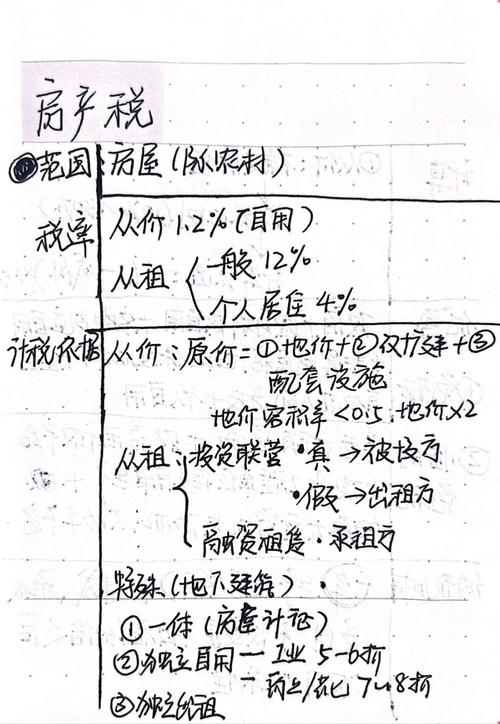 房产税
范围 房屋(除农村)
税率 从价 1.2%(自用)
从租 一般 12%
个人居住 4%
计税依据 从价:原价=①地价+②改扩建+③
配套设施
地价容积率<0.5,地价×2
从租:投资联营 ·真→被投方
·假→出租方
融资租赁·承租方
特殊(地下建筑)·
①一体(房屋计征)
②独立自用—工业 5-6折
—商业/其他 7~8折
③独立出租